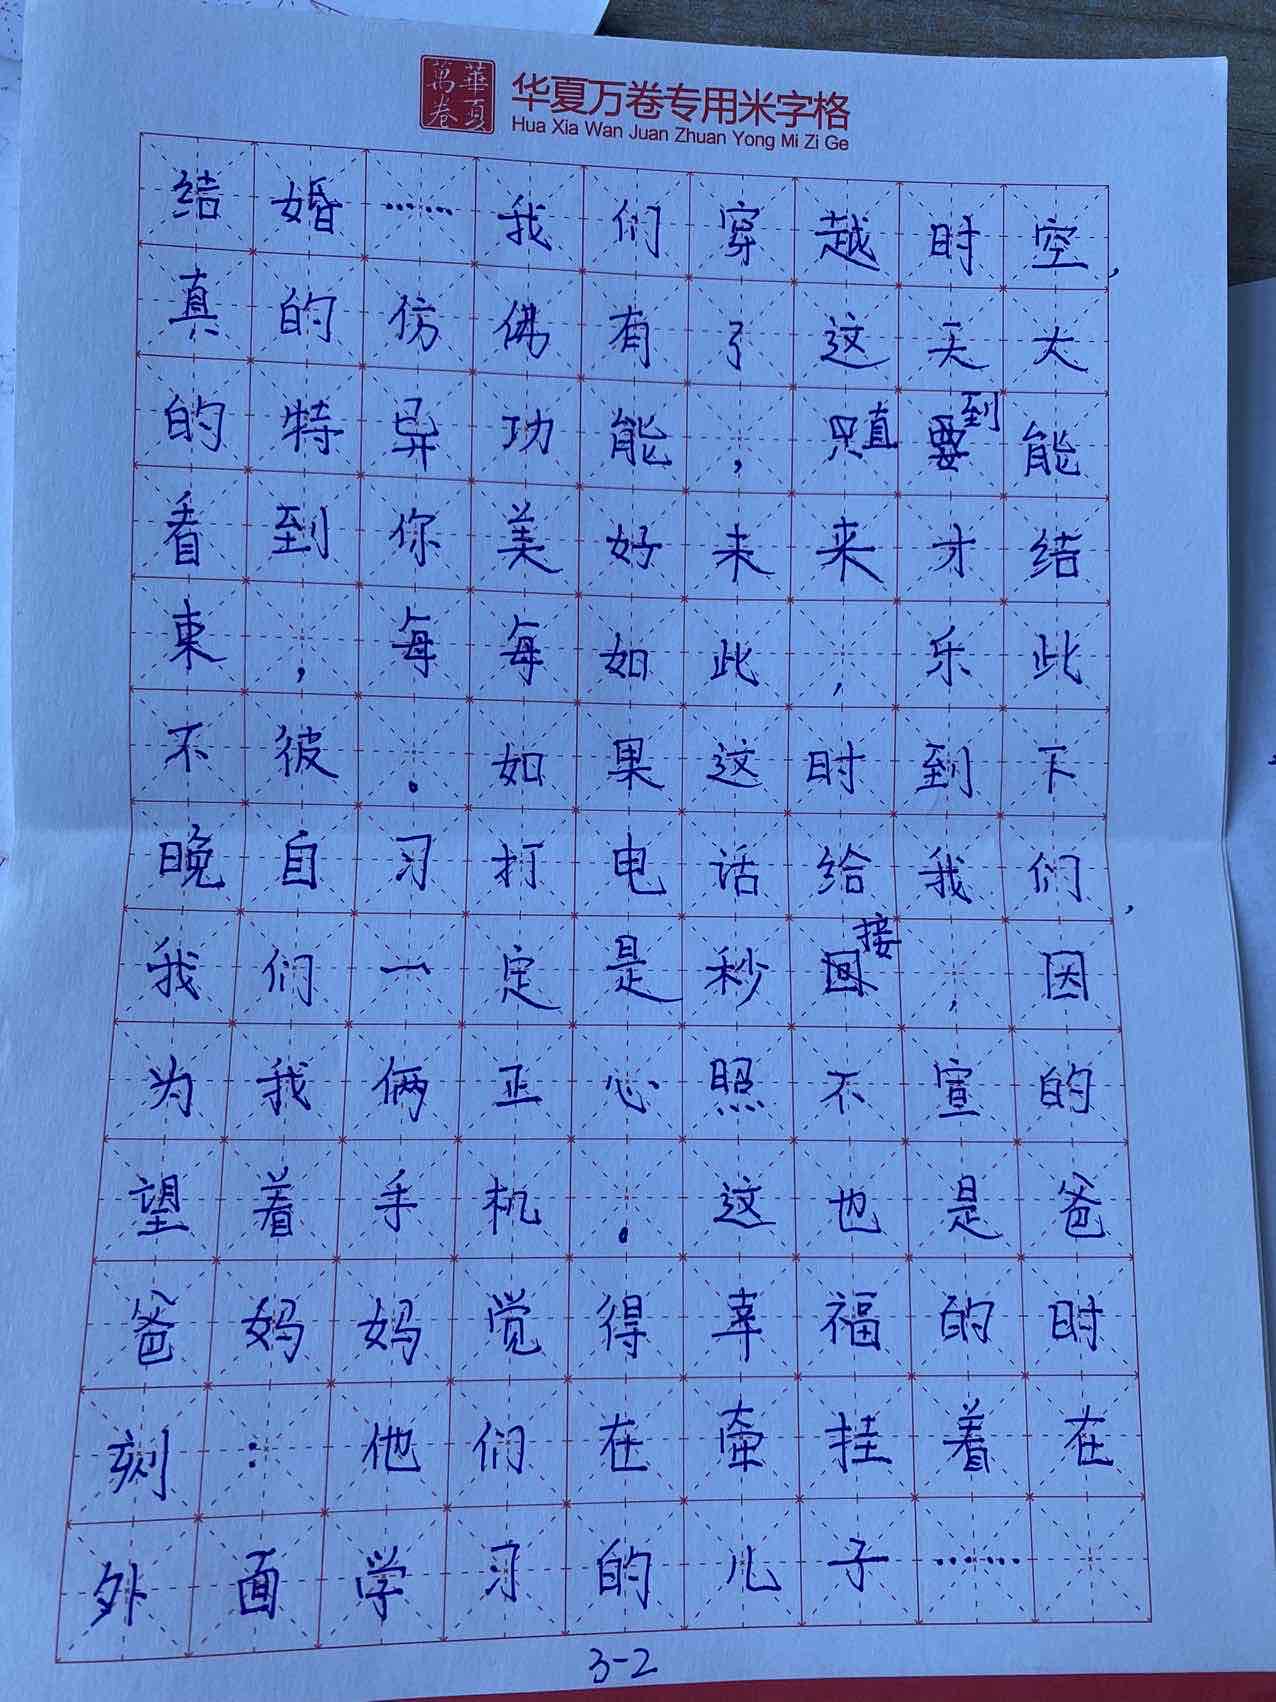 萬華卷夏
华夏万卷专用米字格
Hua Xia Wan Juan Zhuan Yong Mi Zi Ge
结婚……我们穿越时空，
真的仿佛有了这天大
的特异功能，直到能
看到你美好未来才结
束，每每如此，乐此
不彼。如果这时到下
晚自习打电话给我们，
我们一定是秒接，因
为我俩正心照不宣的
望着手机。这也是爸
爸妈妈觉得幸福的时
刻：他们在牵挂着在
外面学习的儿子……
3-2